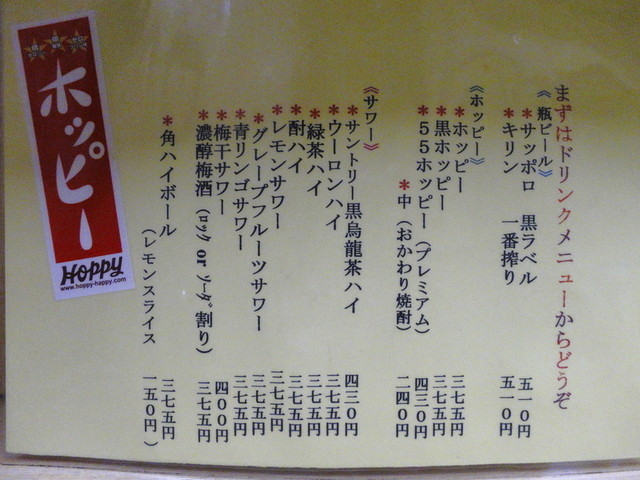 まずはドリンクメニューからどうぞ
《瓶ビール》
*サッポロ 黒ラベル 五一〇円
*キリン 一番搾り 五一〇円
《ホッピー》
*ホッピー 三七五円
*黒ホッピー 三七五円
*５５ホッピー（プレミアム） 四三〇円
*中（おかわり焼酎） 二四〇円
《サワー》
*サントリー黒烏龍茶ハイ 四三〇円
*ウーロンハイ 三七五円
*緑茶ハイ 三七五円
*酎ハイ 三七五円
*レモンサワー 三七五円
*グレープフルーツサワー 三七五円
*青リンゴサワー 三七五円
*梅干サワー 四〇〇円
*濃醇梅酒（ﾛｯｸ or ｿｰﾀﾞ割り） 三七五円
*角ハイボール 三七五円
（レモンスライス 一五〇円）
ホッピー
HOPPY
www.hoppy-happy.com